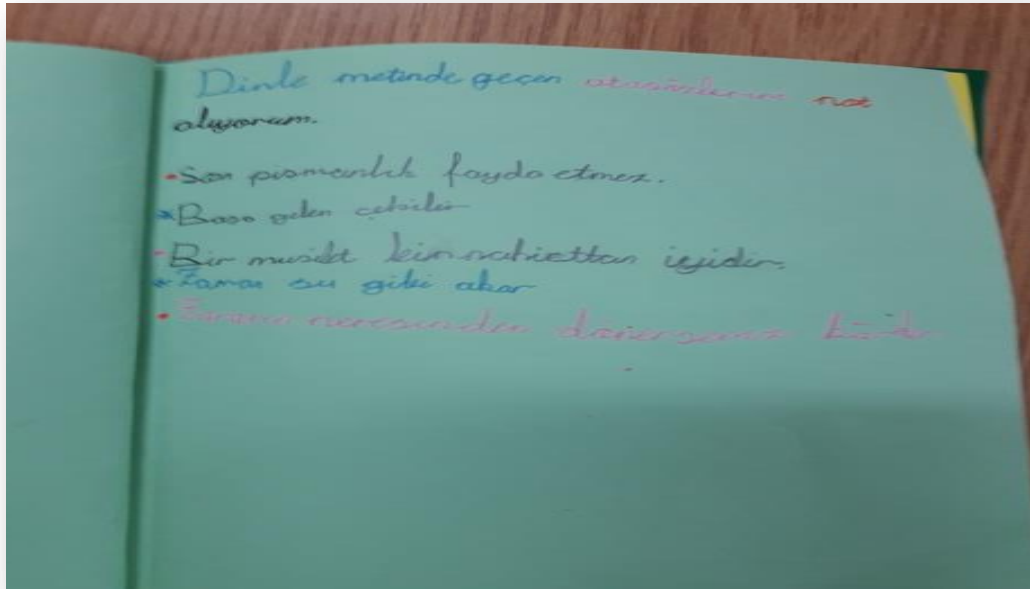 Dinle metinde geçen atasözlerini not
alıyorum.
• Son pişmanlık fayda etmez.
* Başa gelen çekilir
- Bir musibt bin nahiettan iyidir.
* Zaman su gibi akar
• Zararın neresinden dönersen